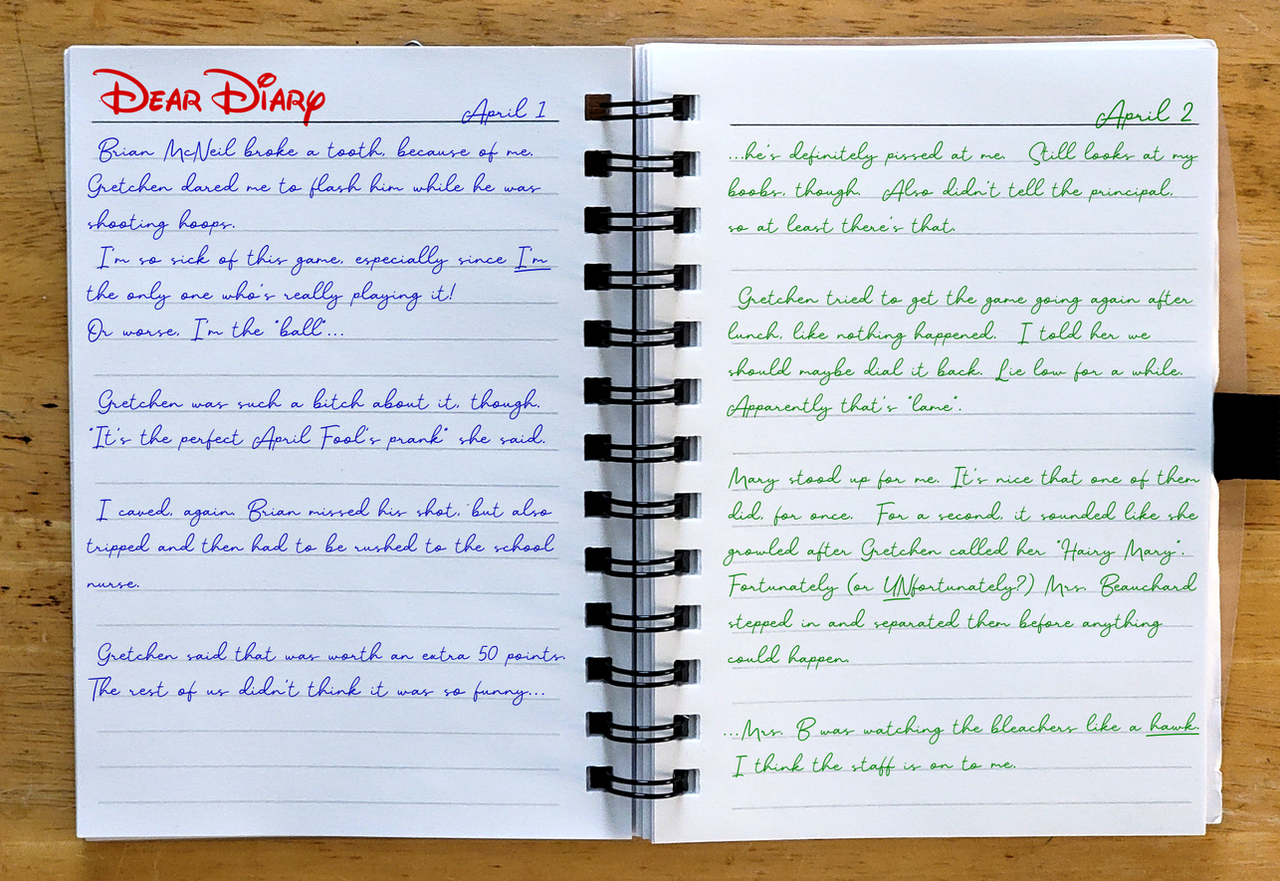 DEAR DIARY
April 1
Brian McNeil broke a tooth, because of me.
Gretchen dared me to flash him while he was
shooting hoops.
I'm so sick of this game, especially since I'm
the only one who's really playing it!
Or worse, I'm the "ball"...
Gretchen was such a bitch about it, though.
"It's the perfect April Fool's prank" she said.
I caved, again. Brian missed his shot, but also
tripped and then had to be rushed to the school
nurse.
Gretchen said that was worth an extra 50 points.
The rest of us didn't think it was so funny...
April 2
...he's definitely pissed at me. Still looks at my
boobs, though. Also didn't tell the principal,
so at least there's that.
Gretchen tried to get the game going again after
lunch, like nothing happened. I told her we
should maybe dial it back. Lie low for a while.
Apparently that's "lame".
Mary stood up for me. It's nice that one of them
did, for once. For a second, it sounded like she
growled after Gretchen called her "Hairy Mary".
Fortunately (or UNfortunately?) Mrs. Beauchard
stepped in and separated them before anything
could happen.
...Mrs. B was watching the bleachers like a hawk.
I think the staff is on to me.